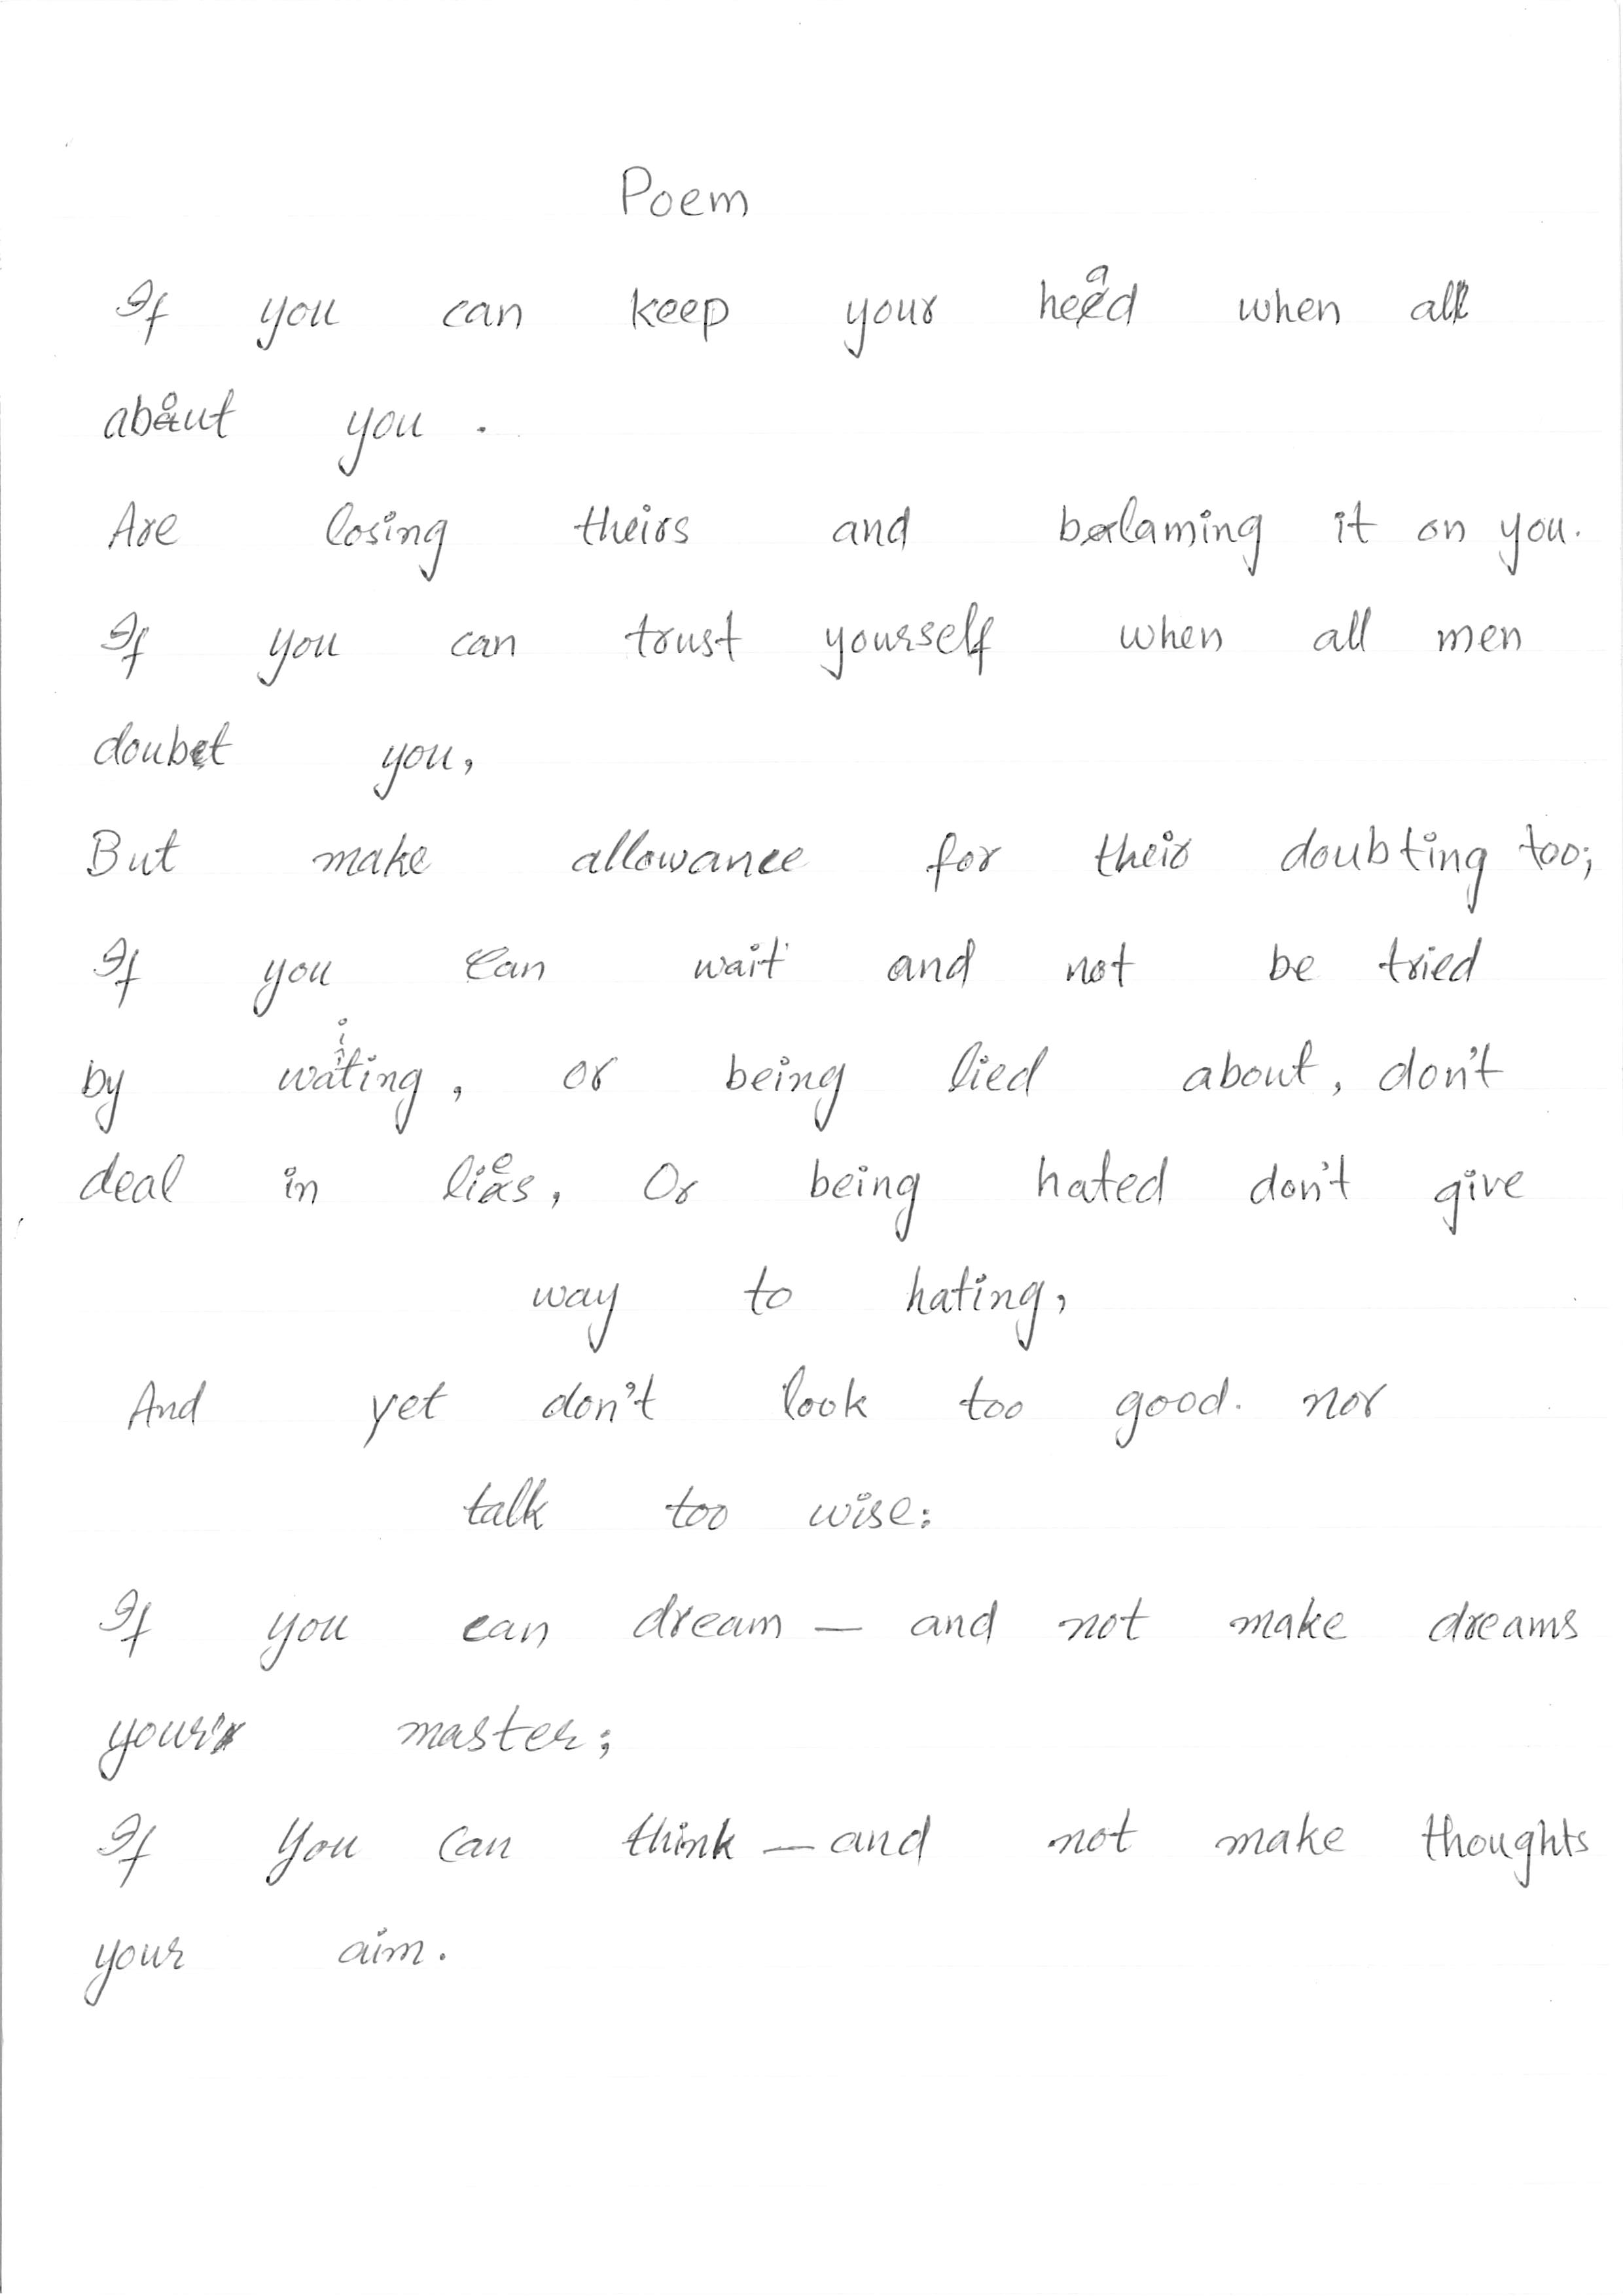 Poem
If you can keep your head when all
about you .
Are losing theirs and blaming it on you.
If you can trust yourself when all men
doubt you,
But make allowance for their doubting too;
If you can wait and not be tried
by waiting, or being lied about, don't
deal in lies, Or being hated don't give
way to hating,
And yet don't look too good. nor
talk too wise:
If you can dream — and not make dreams
your master;
If you can think — and not make thoughts
your aim.